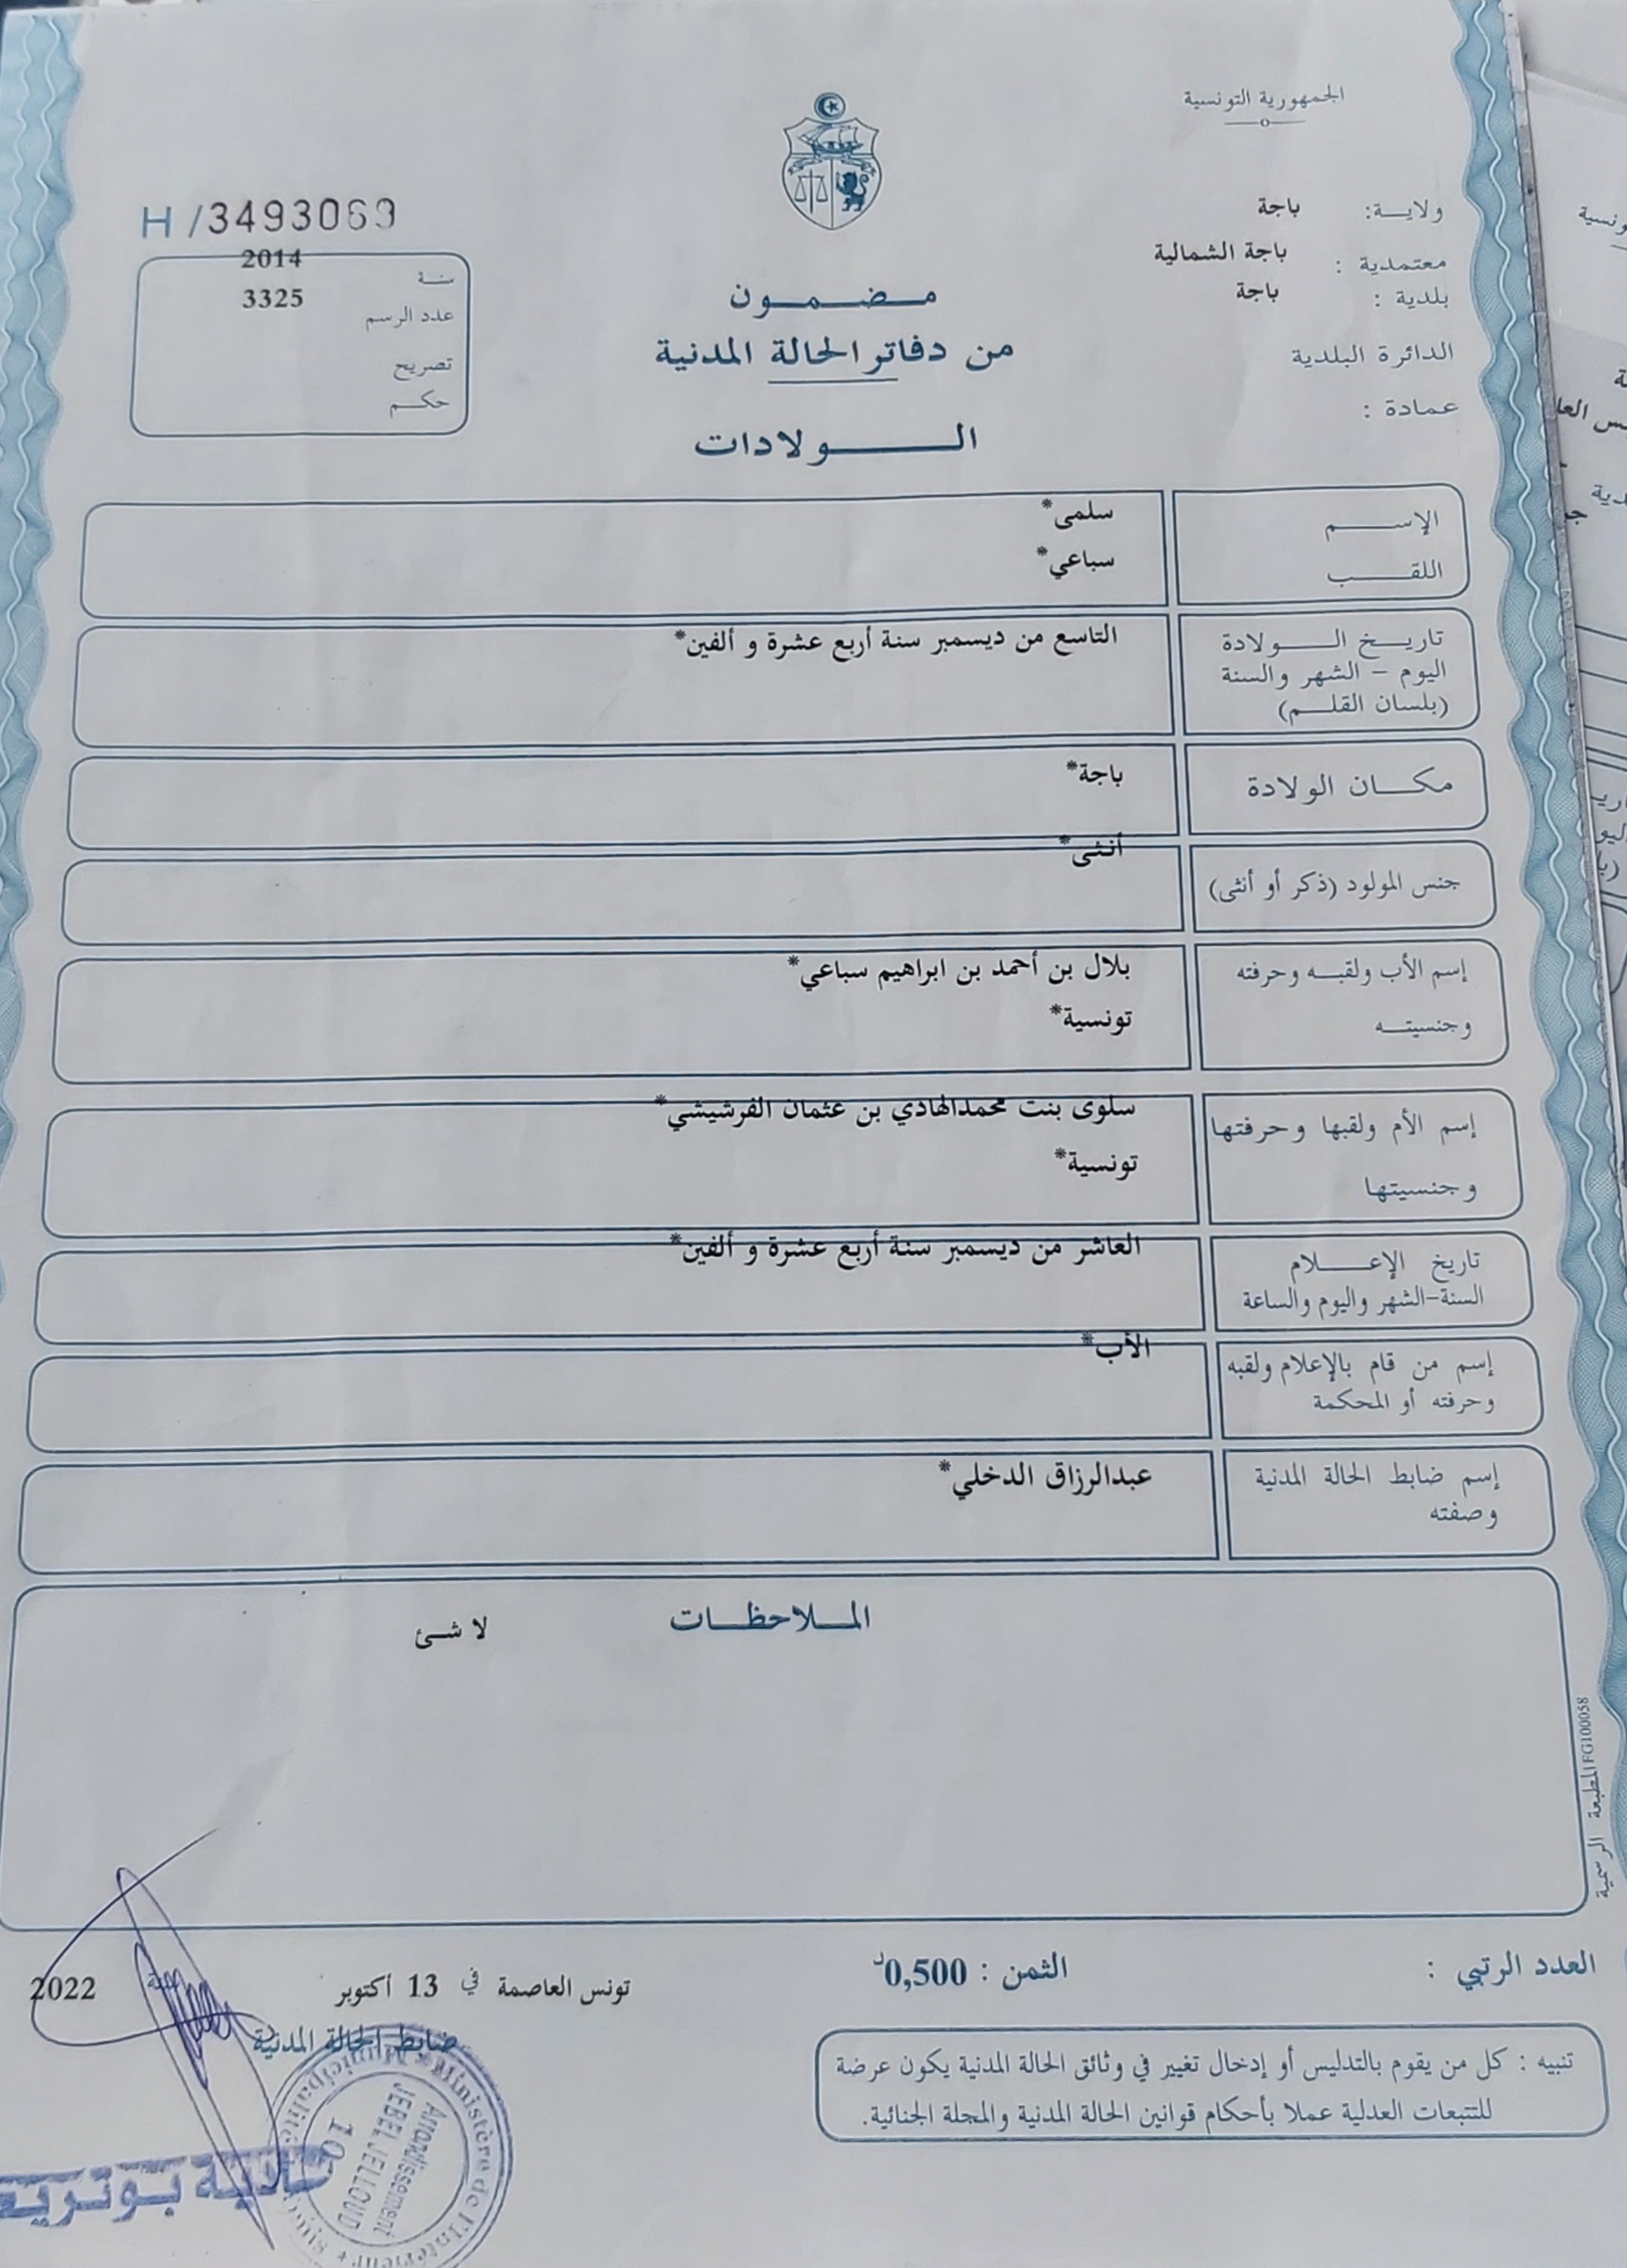 الجمهورية التونسية
ولاية: باجة
معتمدية : باجة الشمالية
بلدية : باجة
الدائرة البلدية
عمادة :
H /3493069
سنة 2014
عدد الرسم 3325
تصريح
حكم
مضمون
من دفاتر الحالة المدنية
الولادات
الإسم سلمى*
اللقب سباعي*
تاريخ الولادة التاسع من ديسمبر سنة أربع عشرة و ألفين*
اليوم - الشهر والسنة
(بلسان القلم)
مكان الولادة باجة*
جنس المولود (ذكر أو أنثى) أنثى*
إسم الأب ولقبه وحرفته بلال بن أحمد بن ابراهيم سباعي*
وجنسيته تونسية*
إسم الأم ولقبها وحرفتها سلوى بنت محمدالهادي بن عثمان الفرشيشي*
وجنسيتها تونسية*
تاريخ الإعلام العاشر من ديسمبر سنة أربع عشرة و ألفين*
السنة-الشهر واليوم والساعة
إسم من قام بالإعلام ولقبه الأب*
وحرفته أو المحكمة
إسم ضابط الحالة المدنية عبدالرزاق الدخلي*
وصفته
الملاحظات لا شئ
المطبعة الرسمية FG100058
العدد الرتبي :
الثمن : 0,500د
تونس العاصمة في 13 أكتوبر سنة 2022
ضابط الحالة المدنية
تنبيه : كل من يقوم بالتدليس أو إدخال تغيير في وثائق الحالة المدنية يكون عرضة
للتتبعات العدلية عملا بأحكام قوانين الحالة المدنية والمجلة الجنائية.
Ministère de l'Intérieur
Municipalité
Arrondissement
JEBEL JELLOUD
10